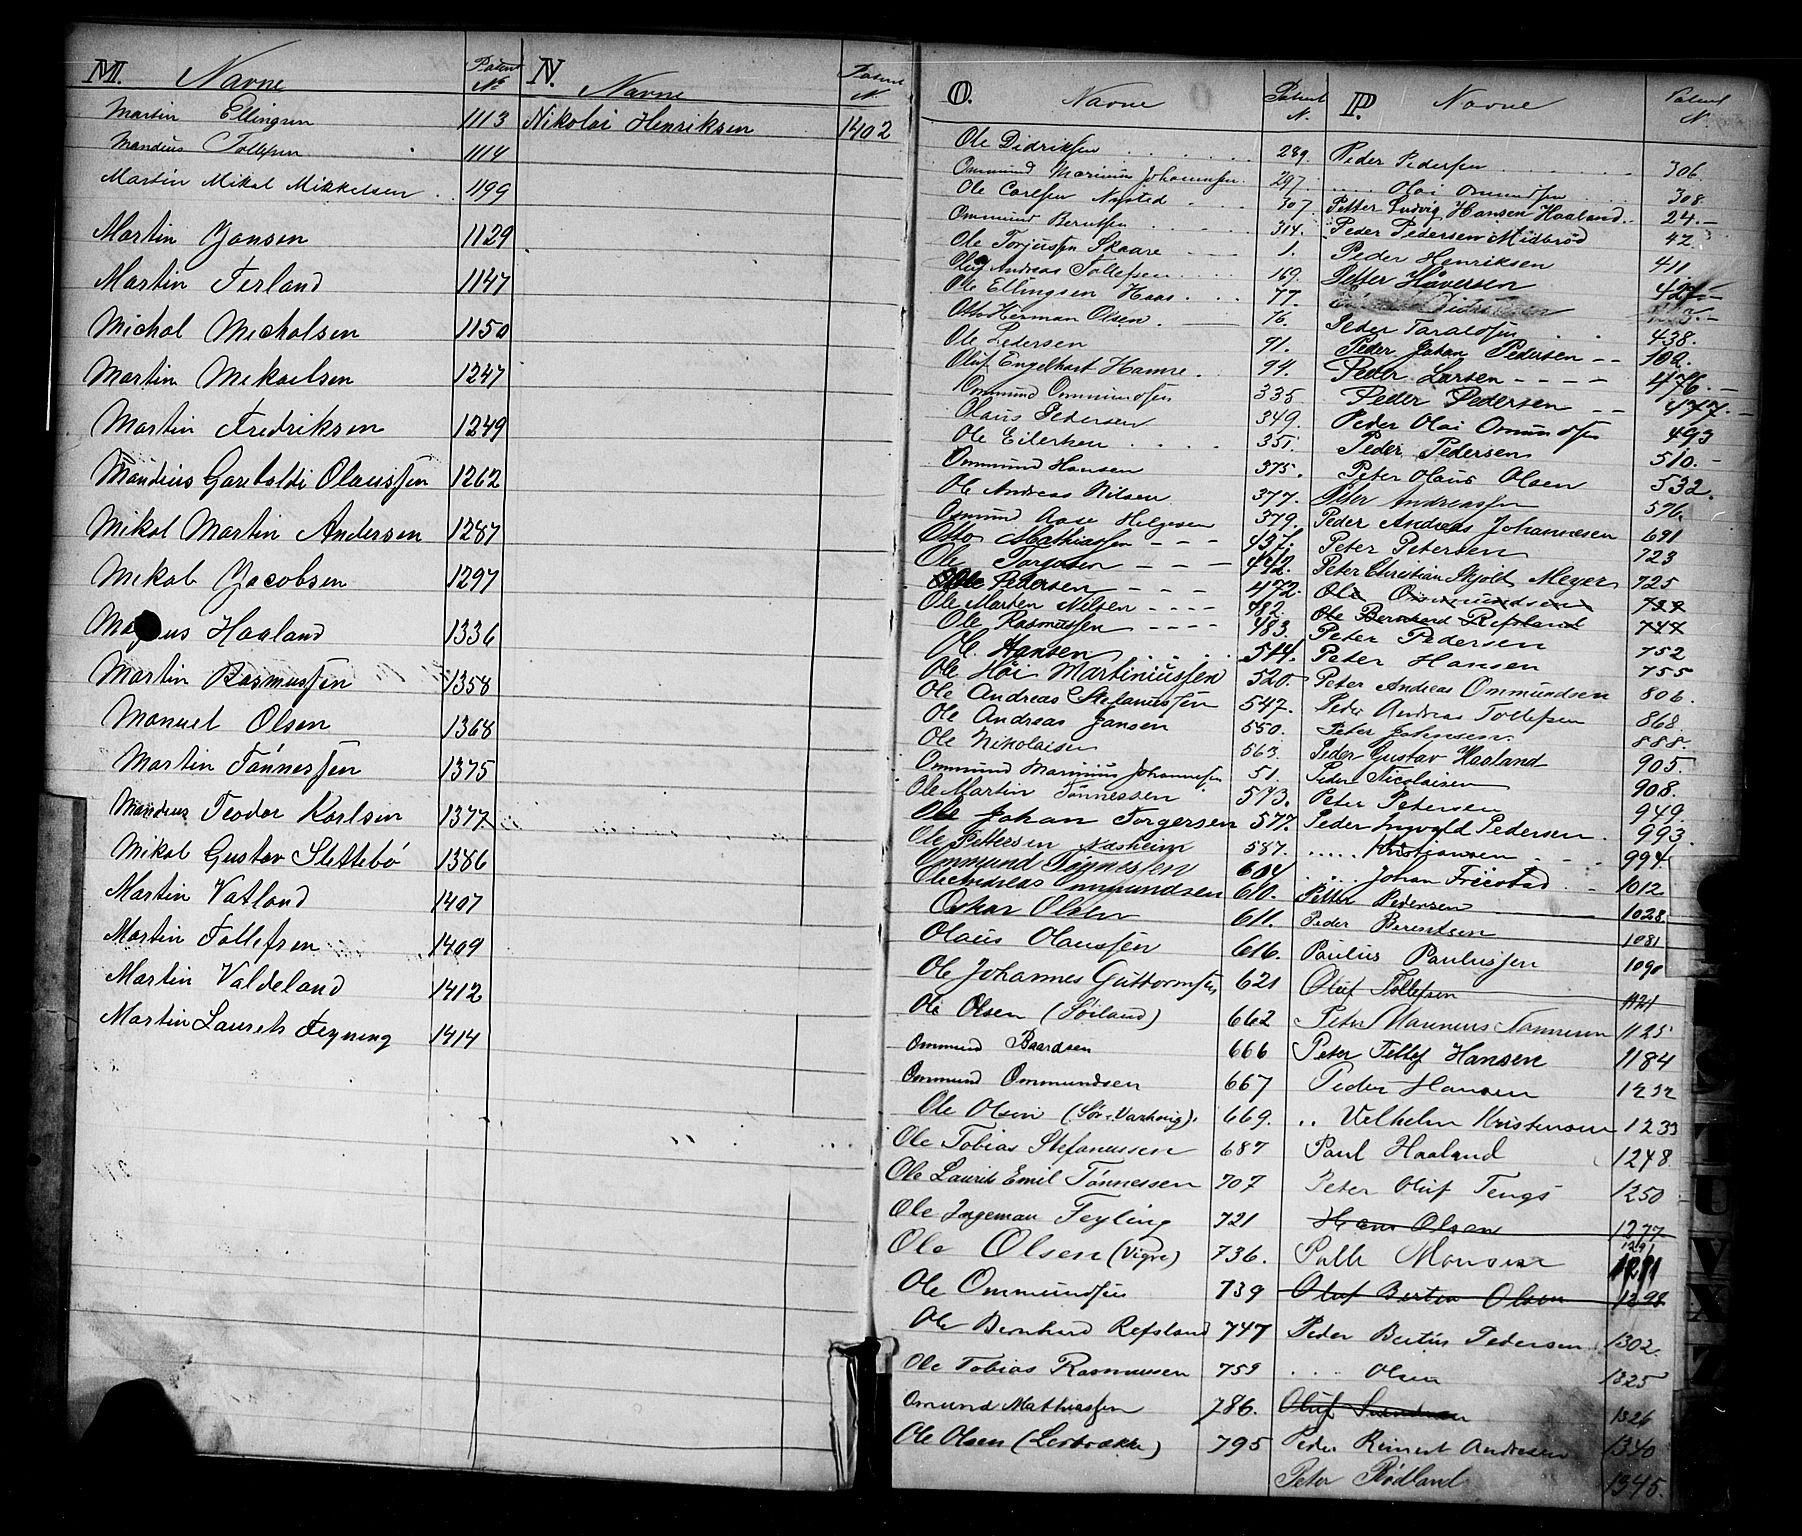 M. Navne Patent No
Martin Ellingsen 1113
Mandius Tollefsen 1114
Martin Mikal Mikkelsen 1199
Martin Jansen 1129
Martin Ferland 1147
Michal Micholsen 1150
Martin Mikaelsen 1247
Martin Fredriksen 1249
Mandius Garibaldi Olaussen 1262
Mikal Martin Andersen 1287
Mikal Jacobsen 1297
Haaland 1336
Martin Rasmussen 1358
Manuel Olsen 1368
Martin Tønnessen 1375
Mandius Teodor Karlsen 1377
Mikal Gustav Slettebø 1386
Martin Vatland 1407
Martin Tollefsen 1409
Martin Valdeland 1412
Martin Laurits Feyning 1414
N. Navne Patent N.
Nikolai Henriksen 1402
O. Navne Patent N.
Ole Didriksen 289.
Ommund Marinius Johannsen 297.
Ole Carlsen Nysted 307.
Ommund Berntsen 314.
Ole Torjussen Skaare 1.
Oluf Andreas Tollefsen 169.
Ole Ellingsen Haas 77.
Otto Herman Olsen 76.
Ole Pedersen 91.
Oluf Engelhart Hamre 94.
Ommund Ommundsen 335.
Olaus Pedersen 349.
Ole Eilertsen 351.
Ommund Hansen 375.
Ole Andreas Nilsen 377.
Omund Aase Helgesen 379.
Otto Mathiassen 437.
Ole Torgersen 442.
Ole Pedersen 472.
Ole Morten Nilsen 482.
Ole Rasmussen 483.
Ole Hansen 514.
Ole Høi Martiniussen 520.
Ole Andreas Stefanussen 547.
Ole Andreas Jansen 550.
Ole Nikolaisen 563.
Ommund Marinius Johannessen 51.
Ole Martin Tønnessen 573.
Ole Johan Torgersen 577.
Ole Pettersen Næsheim 587.
Ommund Tønnessen 604
Ole Andreas Ommundsen 610.
Oskar Olsen 611.
Olaus Olaussen 616.
Ole Johannes Guttormsen 621
Ole Olsen (Søiland) 662
Ommund Baardsen 666
Ommund Ommundsen 667
Ole Olsen (Sør-Varhoug). 669.
Ole Tobias Stefanussen 687
Ole Laurits Emil Tønnessen 707
Ole Ingeman Feyling 721
Ole Olsen (Vigre) 736.
Ole Ommundsen 739
Ole Bernhard Refsland 747
Ole Tobias Rasmussen 759
Omund Mathiassen 786.
Ole Olsen (Lerbrække) 795
P. Navne Patent N.
Peder Pedersen 306.
..... Olai Omundsen 308
Petter Ludvig Hansen Haaland 24.-
Peder Pedersen Midbrød 42
Peder Henriksen 411
Petter Haaversen
Peder Taraldsen 438.
Peder Johan Pedersen 102.
Peder Larsen 476.-
Peder Pedersen 477.-
Peder Olai Omundsen 493
Peder Pedersen 510.-
Peter Olaus Olsen 532.
Peter Andreassen 576.
Peder Andreas Johannesen 691
Peter Petersen 723
Peter Christian Skjold Meyer 725
Ole Ommundsen 739
Ole Bernhard Refsland 747
Peter Pedersen 752
Peter Hansen 755
Peter Andreas Ommundsen 806.
Peder Andreas Tollefsen 868
Peter Johnsen. 888.
Peder Gustav Haaland 905.
Peder Nicolaisen 908.
Peter Petersen 949.
Peder Ingvald Pedersen. 993.
..... Kristiansen 994
..... Johan Fredstad 1012
Petter Pedersen 1028
Peder Berentsen 1081
Paulus Paulussen 1090
Oluf Tollefsen 1121
Peter Maurius Nannesen 1125
Peter Tellef Hansen 1184
Peder Hansen 1232
.. Vilhelm Kristensen 1233
Paul Haaland 1248
Peter Oluf Tengs 1250
Hans Olsen 1277
Palle Monsen 1291
Oluf Bertin Olsen 1298
Peder Bertin Pedersen 1302.
.... Olsen 1325
Oluf 1326
Peder Reinert Andresen 1340
Peter Rødland 1345.
S
T
U
V
X
Z